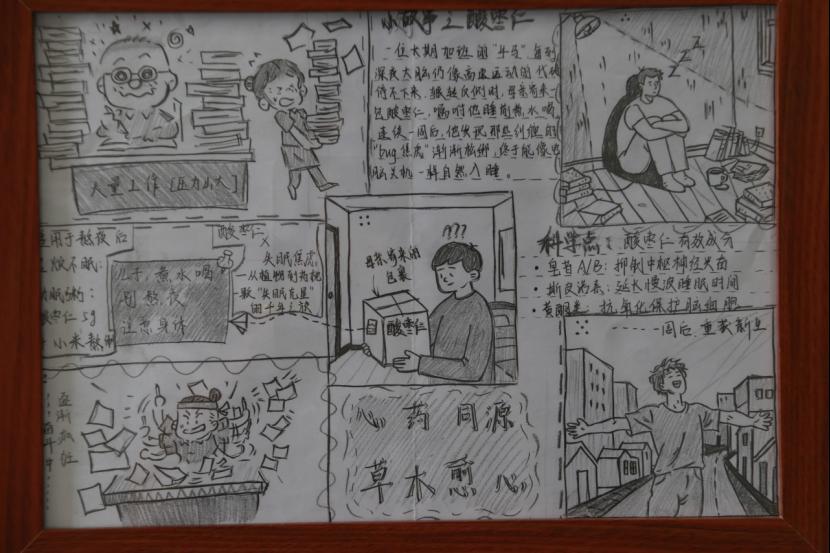 小故事之酸枣仁
一位长期加班的“牛马”每到
深夜大脑仍像高速运转的代码
停不下来，辗转反侧时，母亲寄来一
包酸枣仁，嘱咐他睡前煮水喝。
连续一周后，他发现那些纠缠的
“bug焦虑”渐渐松绑，终于能像电
脑关机一样自然入睡。
大量工作[压力山大]
适用于熬夜后
心烦不眠：
酸枣仁5g
小米
儿子，煮水喝
别熬夜
注意身体
酸枣仁
失眠焦虑
从植物到
“失眠克星”
的千年之旅
母亲寄来的
包裹
???
酸枣仁
ZZZ
科学点：酸枣仁有效成分
皂苷A/B：抑制中枢神经兴奋
斯皮诺素：延长慢波睡眠时间
黄酮类：抗氧化保护脑细胞
一周后，重获新生
逐渐
心药同源
草木愈心